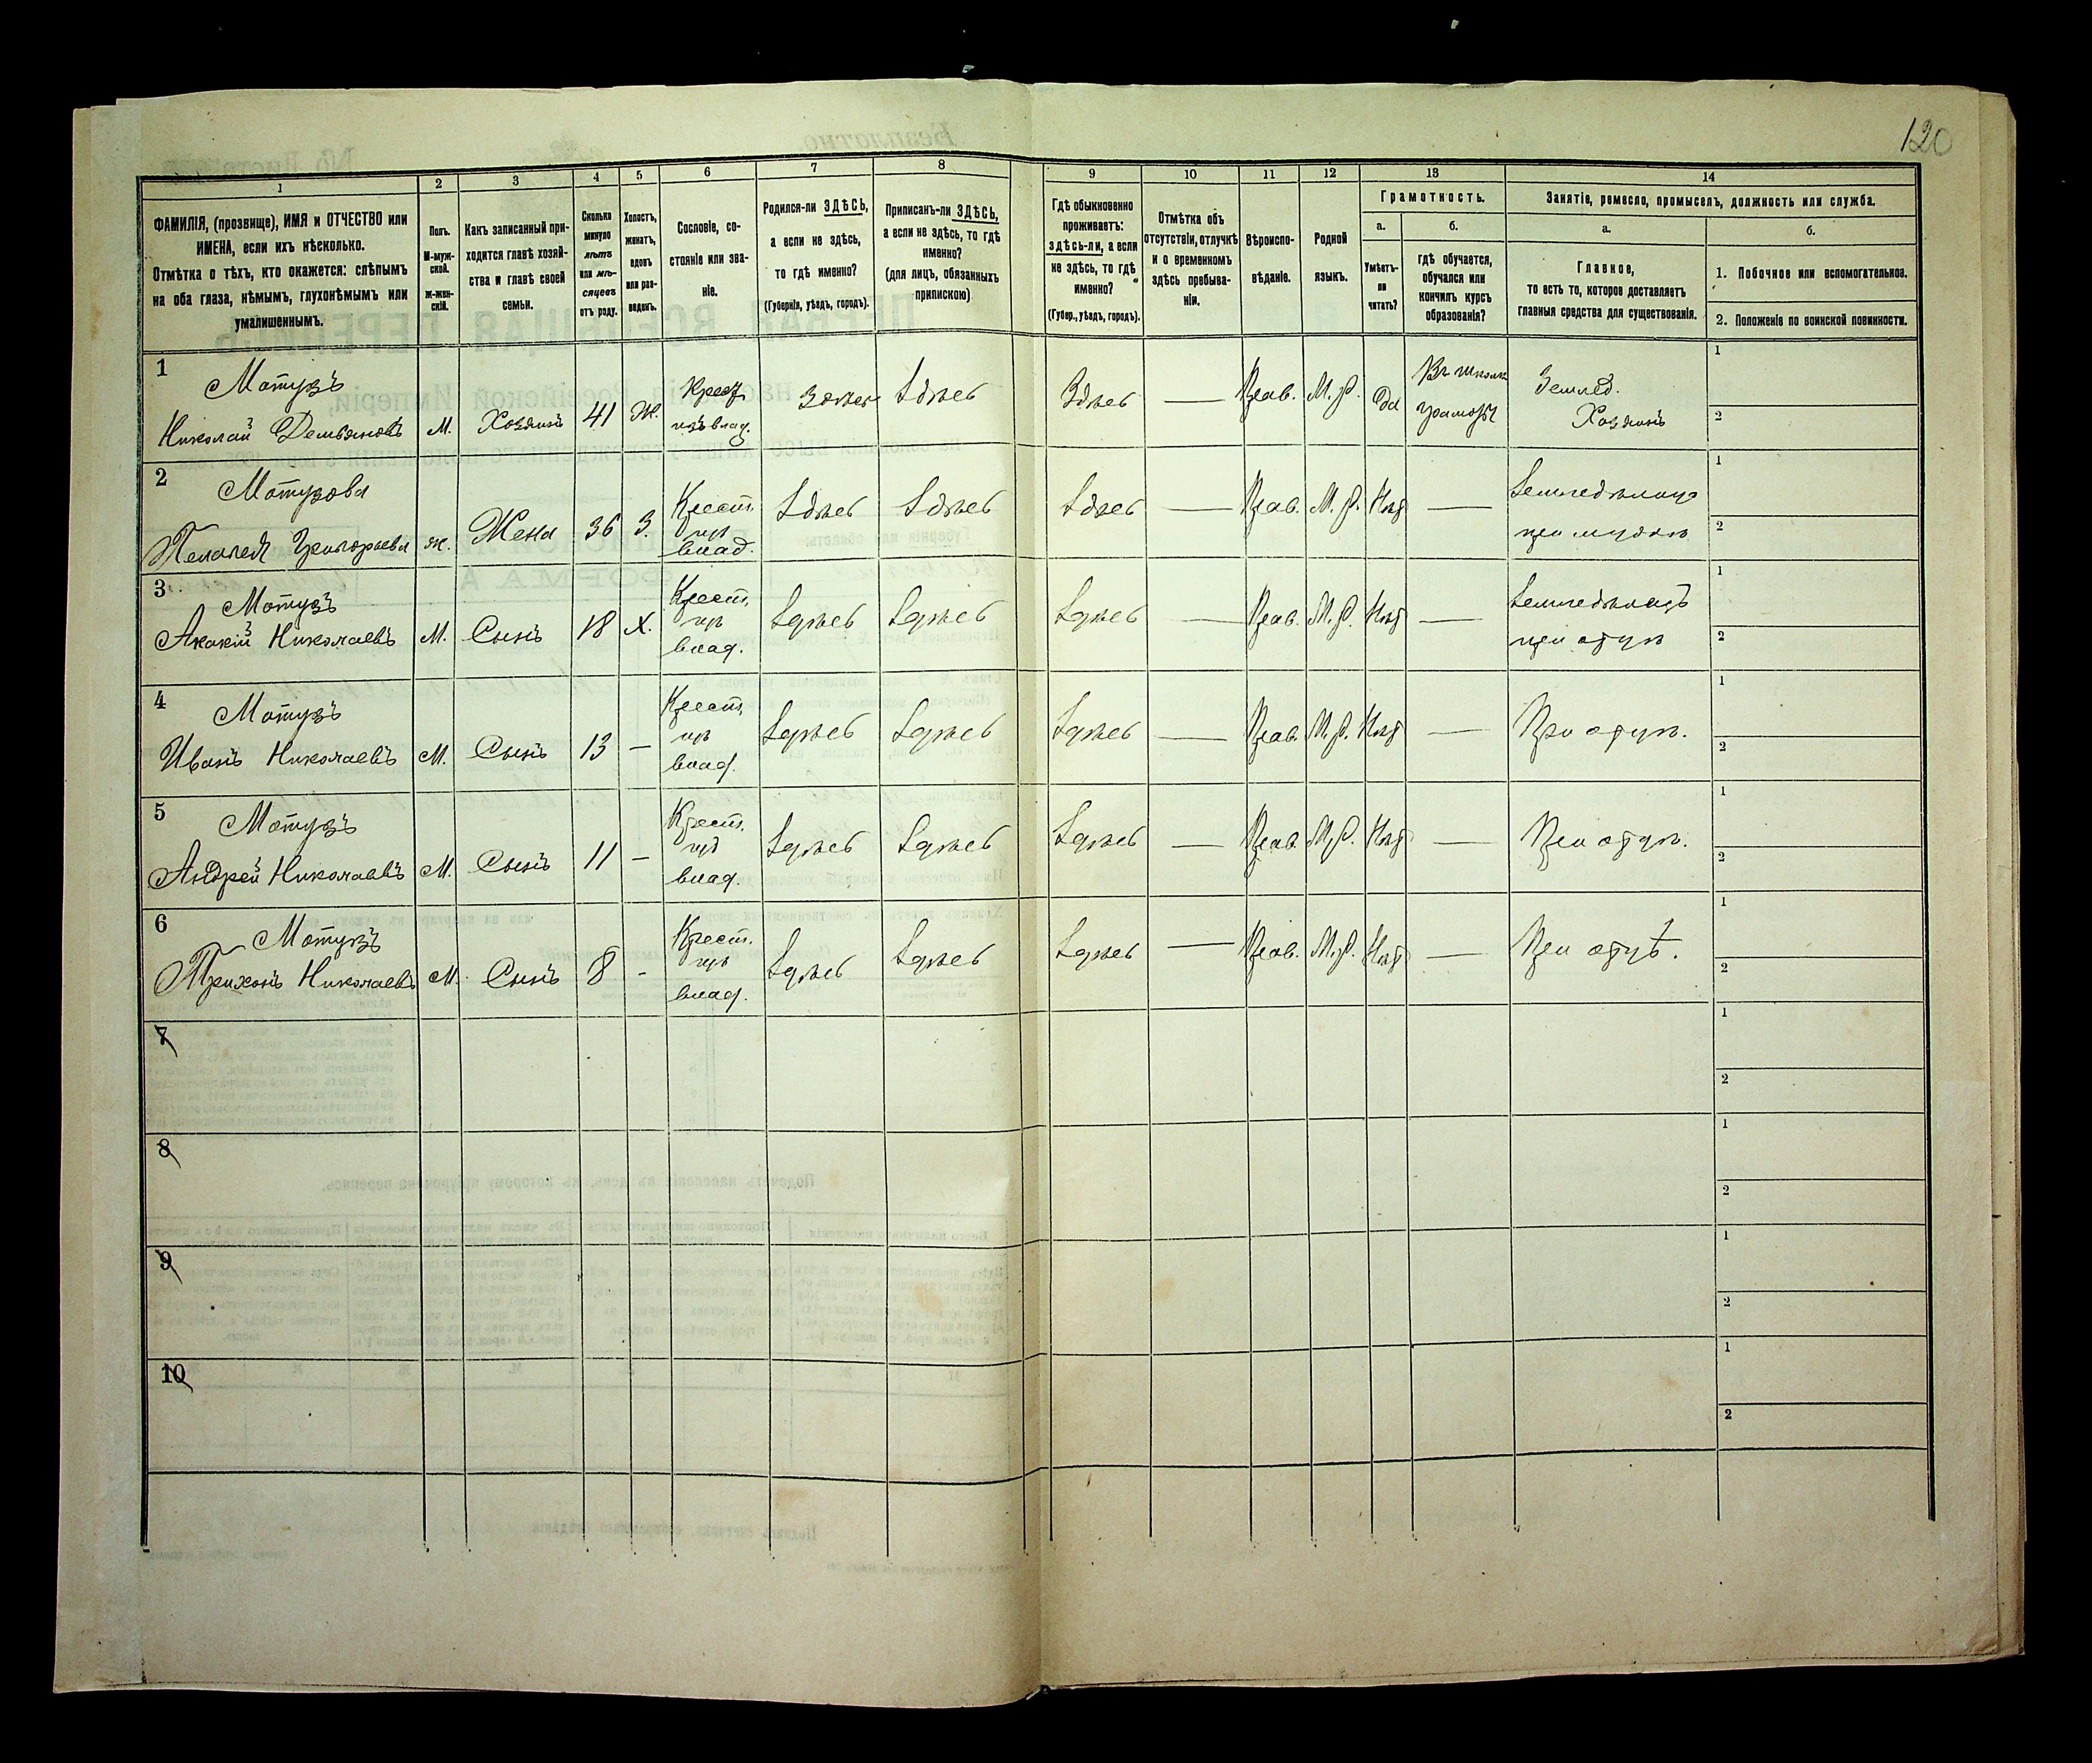 120
1 2 3 4 5 6 7 8 9 10 11 12 13 14
ФАМИЛІЯ, (прозвище), ИМЯ и ОТЧЕСТВО или
ИМЕНА, если ихъ нѣсколько.
Отмѣтка о тѣхъ, кто окажется: слѣпымъ
на оба глаза, нѣмымъ, глухонѣмымъ или
умалишеннымъ.
Полъ.
М-муж-
ской.
ж-жен-
скій.
Какъ записанный при-
ходится главѣ хозяй-
ства и главѣ своей
семьи.
Сколько
минуло
лѣтъ
или мѣ-
сяцевъ
отъ роду.
Холостъ,
женатъ,
вдовъ
или раз-
веденъ.
Сословіе, со-
стояніе или зва-
ніе.
Родился-ли ЗДѢСЬ,
а если не здѣсь,
то гдѣ именно?
(Губернія, уѣздъ, городъ).
Приписанъ-ли ЗДѢСЬ,
а если не здѣсь, то гдѣ
именно?
(для лицъ, обязанныхъ
припискою)
Гдѣ обыкновенно
проживаетъ:
здѣсь-ли, а если
не здѣсь, то гдѣ
именно?
(Губер., уѣздъ, городъ).
Отмѣтка объ
отсутствіи, отлучкѣ
и о временномъ
здѣсь пребыва-
ніи.
Вѣроиспо-
вѣданіе.
Родной
языкъ.
Грамотность.
а.
Умѣетъ-
ли
читать?
б.
гдѣ обучается,
обучался или
кончилъ курсъ
образованія?
Занятіе, ремесло, промыселъ, должность или служба.
а.
Главное,
то есть то, которое доставляетъ
главныя средства для существованія.
б.
1. Побочное или вспомогательное.
2. Положеніе по воинской повинности.
1 Мотузъ
Николай Демьяновъ М. Хозяинъ 41 Ж. Крест. изъ влад. Здѣсь Здѣсь Здѣсь — Прав. М. Р. Да Въ школѣ грамоты Землед. Хозяинъ 1 2
2 Мотузова
Пелагея Григорьева ж. Жена 36 З. Крест. изъ влад. Здѣсь Здѣсь Здѣсь — Прав. М. Р. Нѣт — при мужѣ 1 2
3 Мотузъ
Акакій Николаевъ М. Сынъ 18 Х. Крест. изъ влад. Здѣсь Здѣсь Здѣсь — Прав. М. Р. Нѣт — при отцѣ 1 2
4 Мотузъ
Иванъ Николаевъ М. Сынъ 13 — Крест. изъ влад. Здѣсь Здѣсь Здѣсь — Прав. М. Р. Нѣт — При отцѣ. 1 2
5 Мотузъ
Андрей Николаевъ М. Сынъ 11 — Крест. изъ влад. Здѣсь Здѣсь Здѣсь — Прав. М. Р. Нѣт — При отцѣ. 1 2
6 Мотузъ
Николаевъ М. Сынъ 8 - Крест. изъ влад. Здѣсь Здѣсь Здѣсь — Прав. М. Р. Нѣт — При отцѣ. 1 2
7 1 2
8 1 2
9 1 2
10 1 2